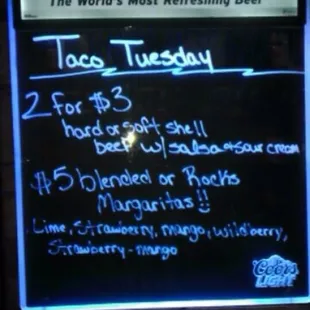 The World's Most Refreshing Beer
Taco Tuesday
2 for $3
hard or soft shell
beef w/ salsa + sour cream
$5 blended or Rocks
Margaritas!!
Lime, Strawberry, mango, wildberry,
Strawberry-mango
Coors
LIGHT